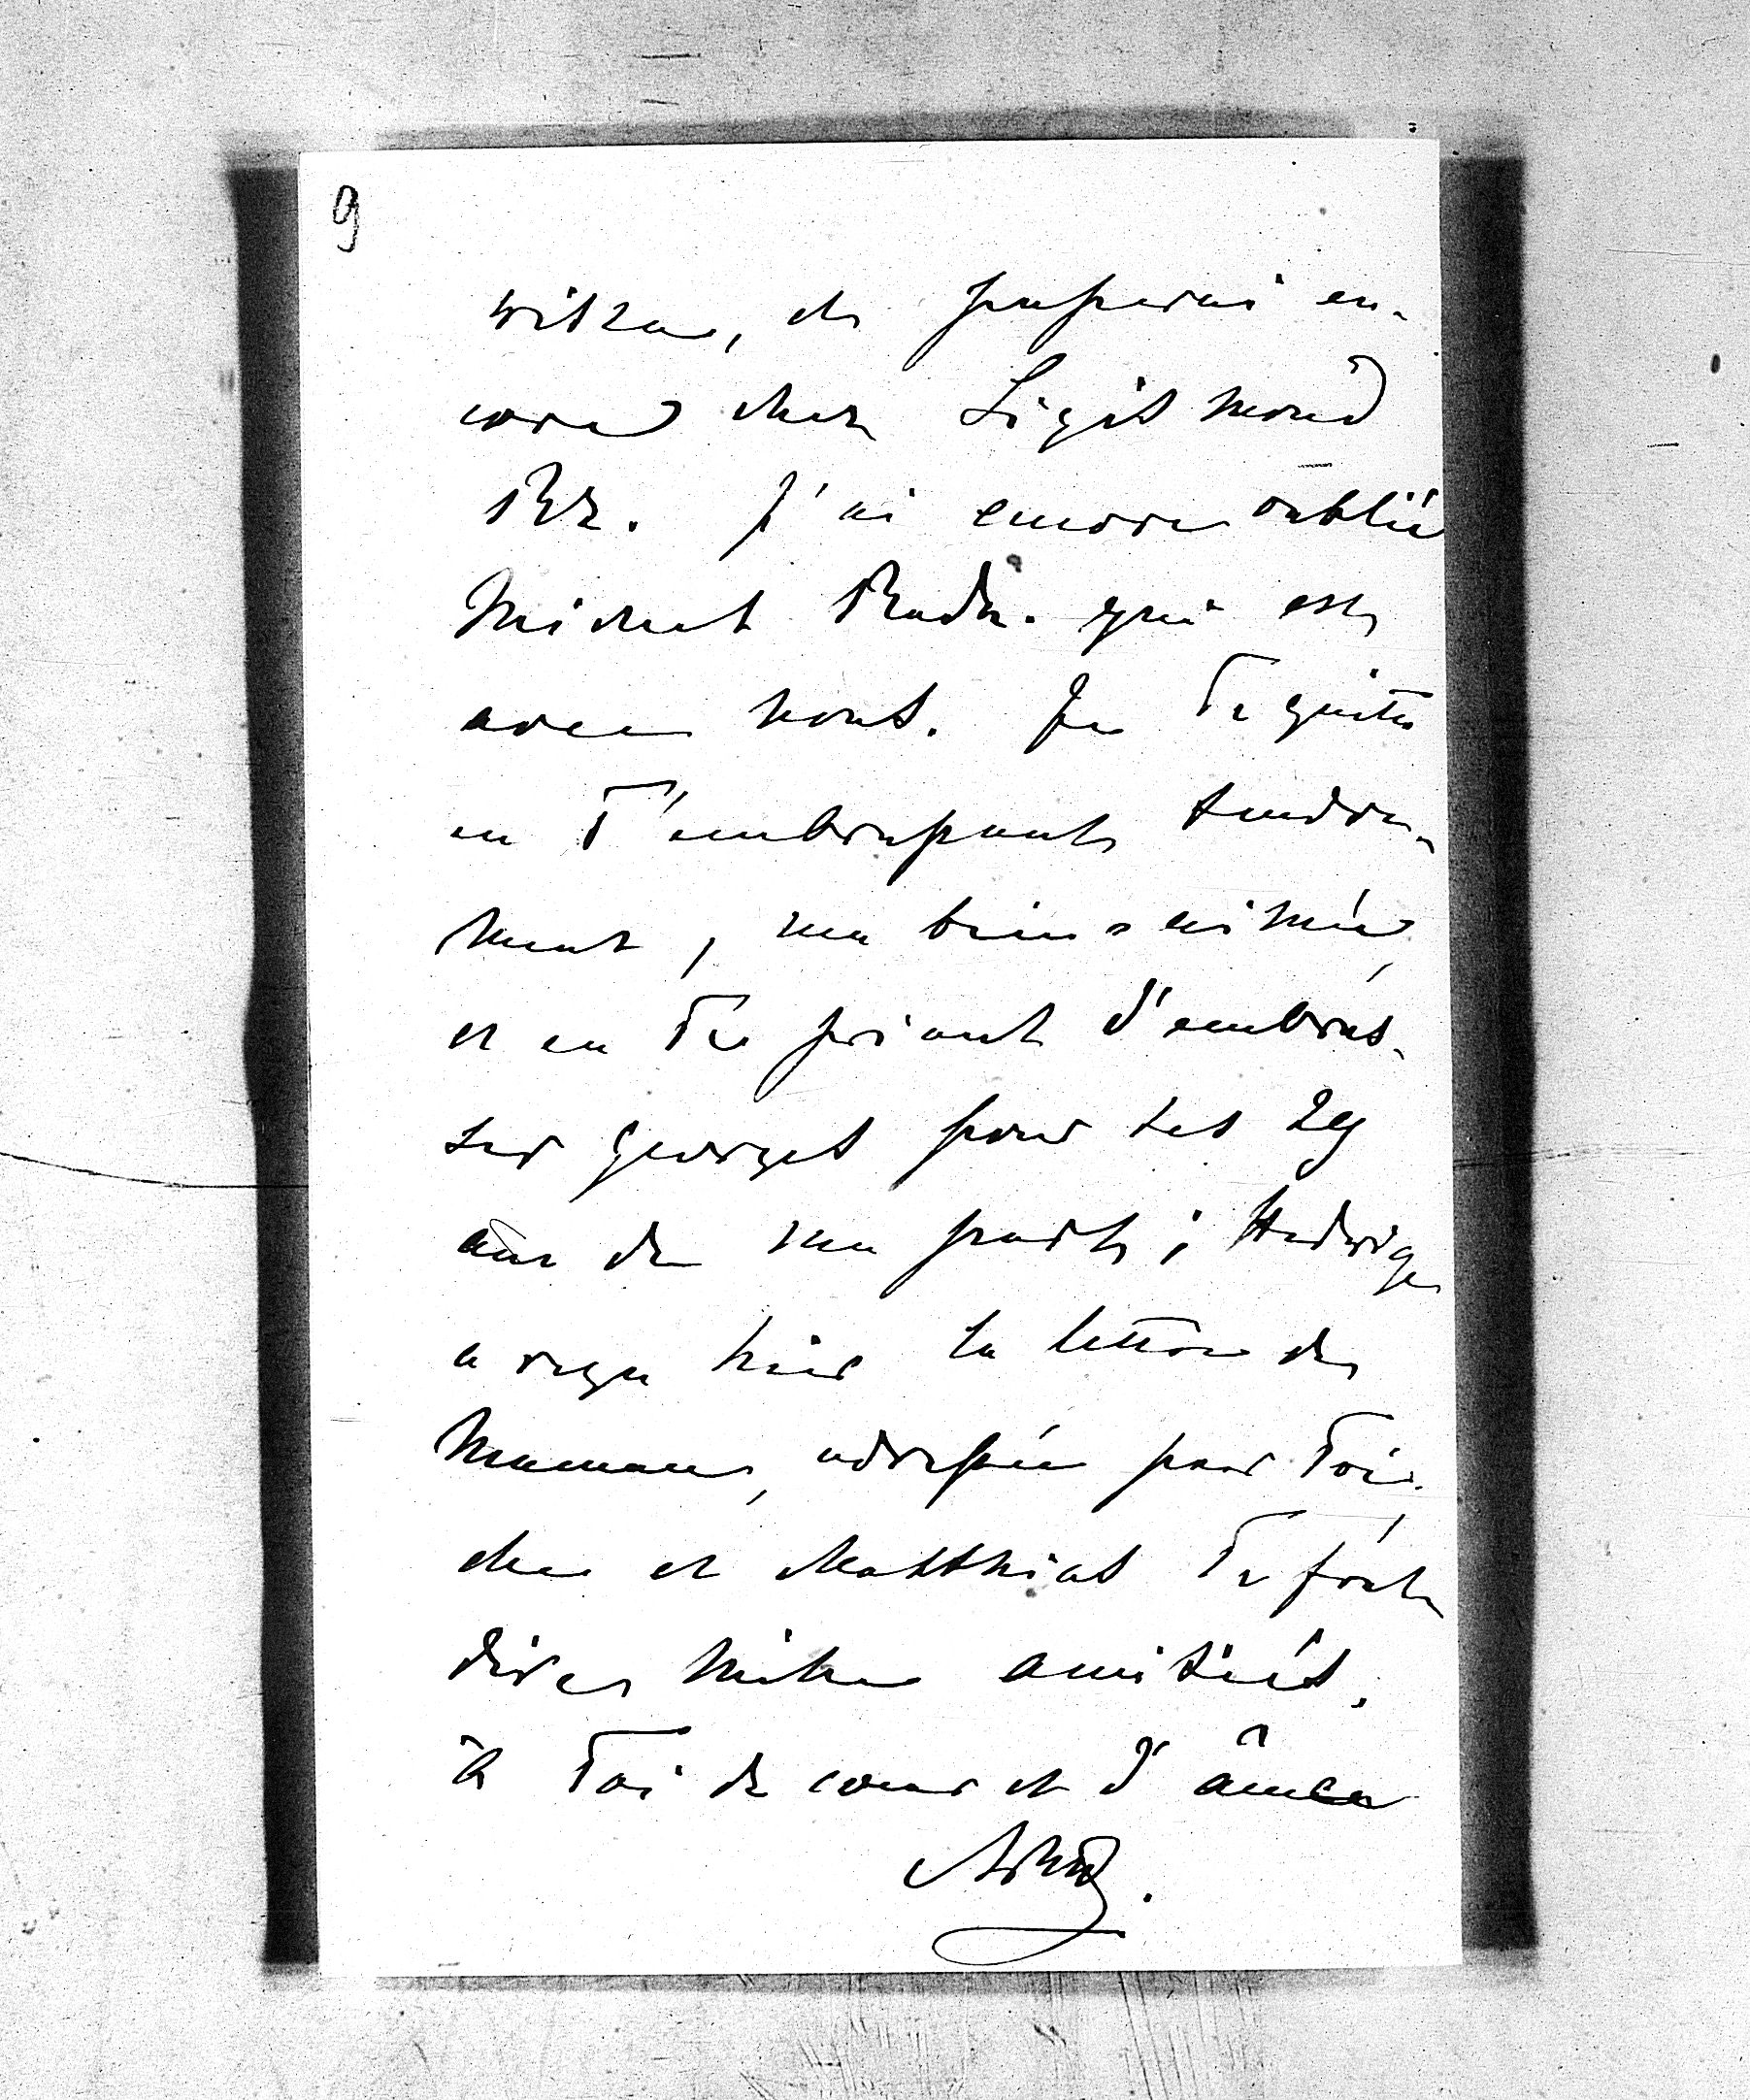 9
witza, et passerai en-
core chez Sigismond
Rz. J'ai encore oublié
Michel Radz. qui est
avec nous. Je Te quitte
en T'embrassant tendre-
ment, ma bien-aimée,
et en Te priant d'embras-
ser Georges pour ses 29
ans de ma part; Hedwige
a reçu hier la lettre de
Maman, adressée par Toi.
elle et Matthias Te font
dire mille amitiés.
à Toi de coeur et d'âme